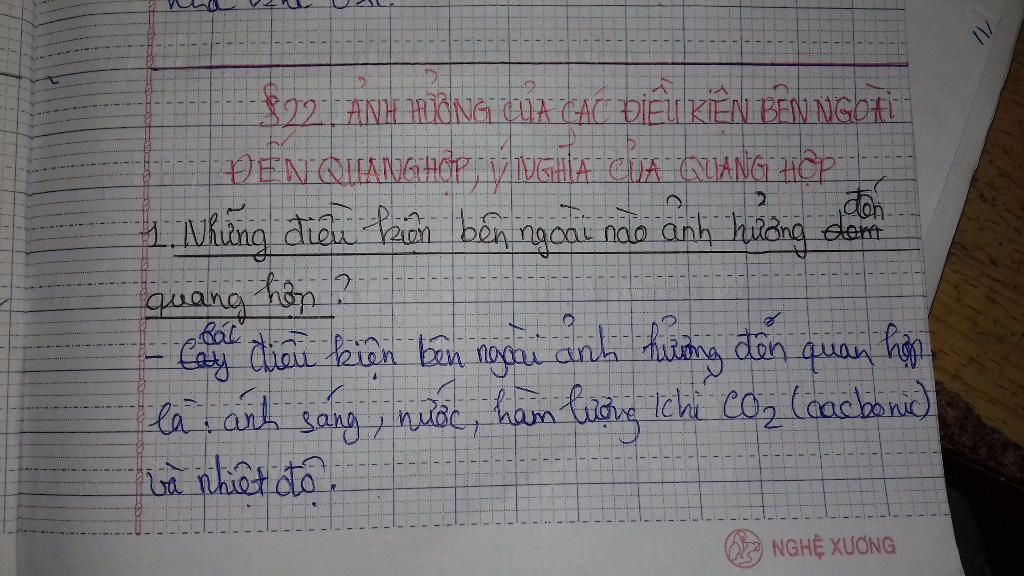 §22. ẢNH HƯỞNG CỦA CÁC ĐIỀU KIỆN BÊN NGOÀI
ĐẾN QUANG HỢP, Ý NGHĨA CỦA QUANG HỢP
1. Những điều kiện bên ngoài nào ảnh hưởng đến
quang hợp ?
- Các điều kiện bên ngoài ảnh hưởng đến quan hợp
là : ánh sáng, nước, hàm lượng khí CO2 (cacbonic)
và nhiệt độ.
NGHỆ XƯƠNG